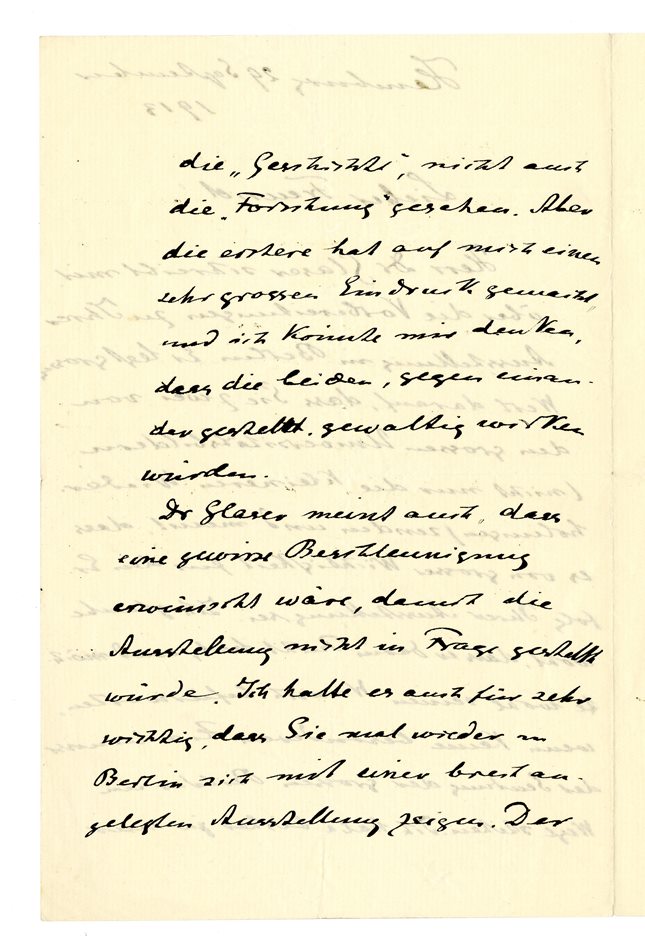 die „Geschichte“, nicht auch
die „Forschung“ gesehen. Aber
die erstere hat auf mich einen
sehr grossen Eindruck gemacht,
und ich könnte mir denken,
dass die beiden, gegen einan-
der gestellt, gewaltig wirken
würden.
Dr Glaser meint auch, dass
eine gewisse Beschleunigung
erwünscht wäre, damit die
Ausstellung nicht in Frage gestellt
würde. Ich halte es auch für sehr
wichtig, dass Sie mal wieder in
Berlin sich mit einer breit an-
gelegten Ausstellung zeigen. Der